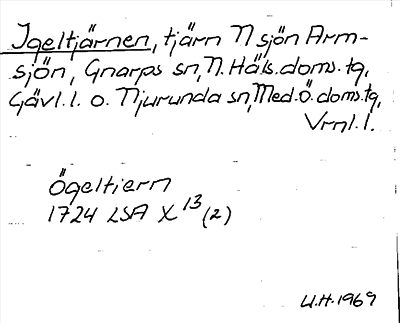 Igeltjärnen, tjärn N sjön Arm-
sjön, Gnarps sn, N. Häls. doms. tg,
Gävl. l. o. Njurunda sn, Med. Ö. doms. tg,
Vrnl. l.
Ögeltiern
1724 LSA X 13 (2)
U.H. 1969